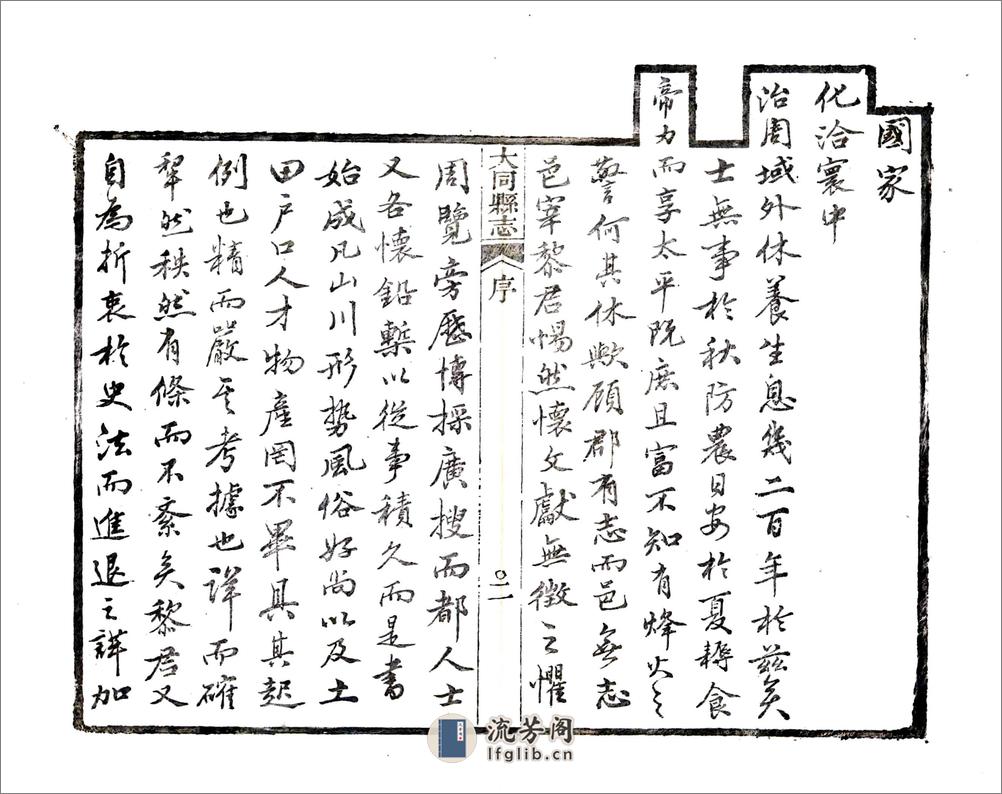 國家
化洽寰中
治周域外休養生息幾二百年於茲矣
士無事於秋防農日安於夏耨食
帝力而享太平既庶且富不知有烽火之
警何其休歟顧郡有志而邑無志
邑宰黎君惕然懷文獻無徵之懼
大同縣志
序
二
周覽旁歷博採廣搜而都人士
又各懷鉛槧以從事積久而是書
始成凡山川形勢風俗好尚以及土
田戶口人才物產罔不畢具其起
例也精而嚴其考據也詳而確
犂然秩然有條而不紊矣黎君又
自為折衷於史法而進退之謹加
流芳阁
lfglib.cn